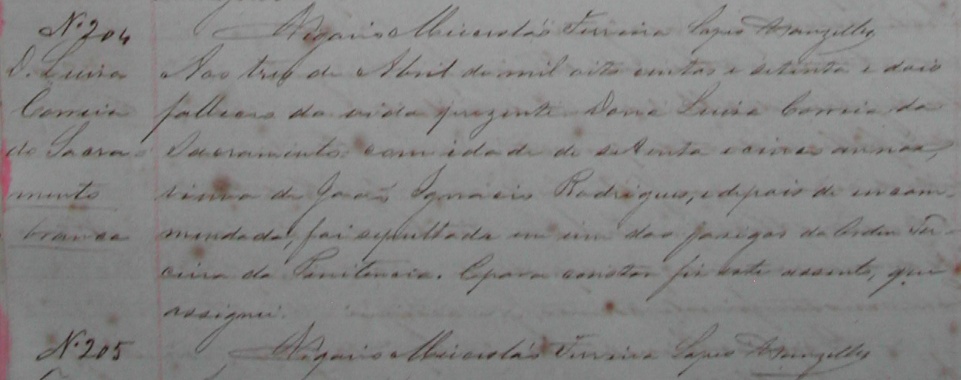 Nº 204 Vigario Miceslás Ferreira Lopes Wanzeller
D. Luisa Aos tres de Abril de mil oito centos e setenta e dois
Correia falleceo da vida prezente Dona Luisa Correia do
do Sacra- Sacramento com idade de setenta e cinco annos,
mento viuva de João Ignacio Rodrigues, e depois de encom-
branca mendada, foi sepultada em um dos jasigos da Ordem Ter-
ceira da Penitencia. E para constar fiz este assento, que
assignei.
Nº 205 Vigario Miceslás Ferreira Lopes Wanzeller